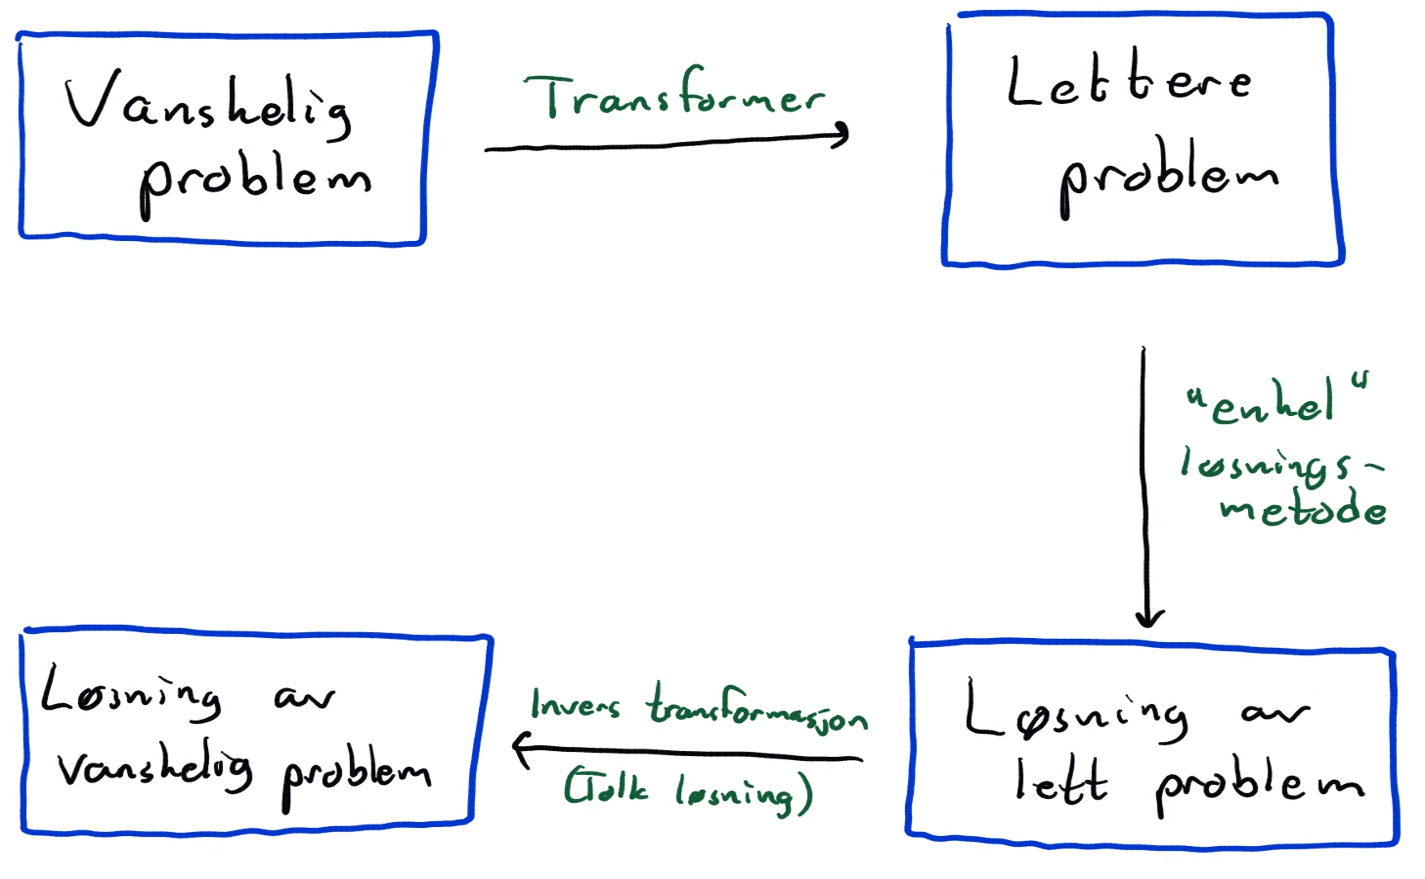 Vanskelig
problem
Transformer
Lettere
problem
"enkel"
løsnings-
metode
Løsning av
lett problem
Invers transformasjon
(Tolk løsning)
Løsning av
vanskelig problem